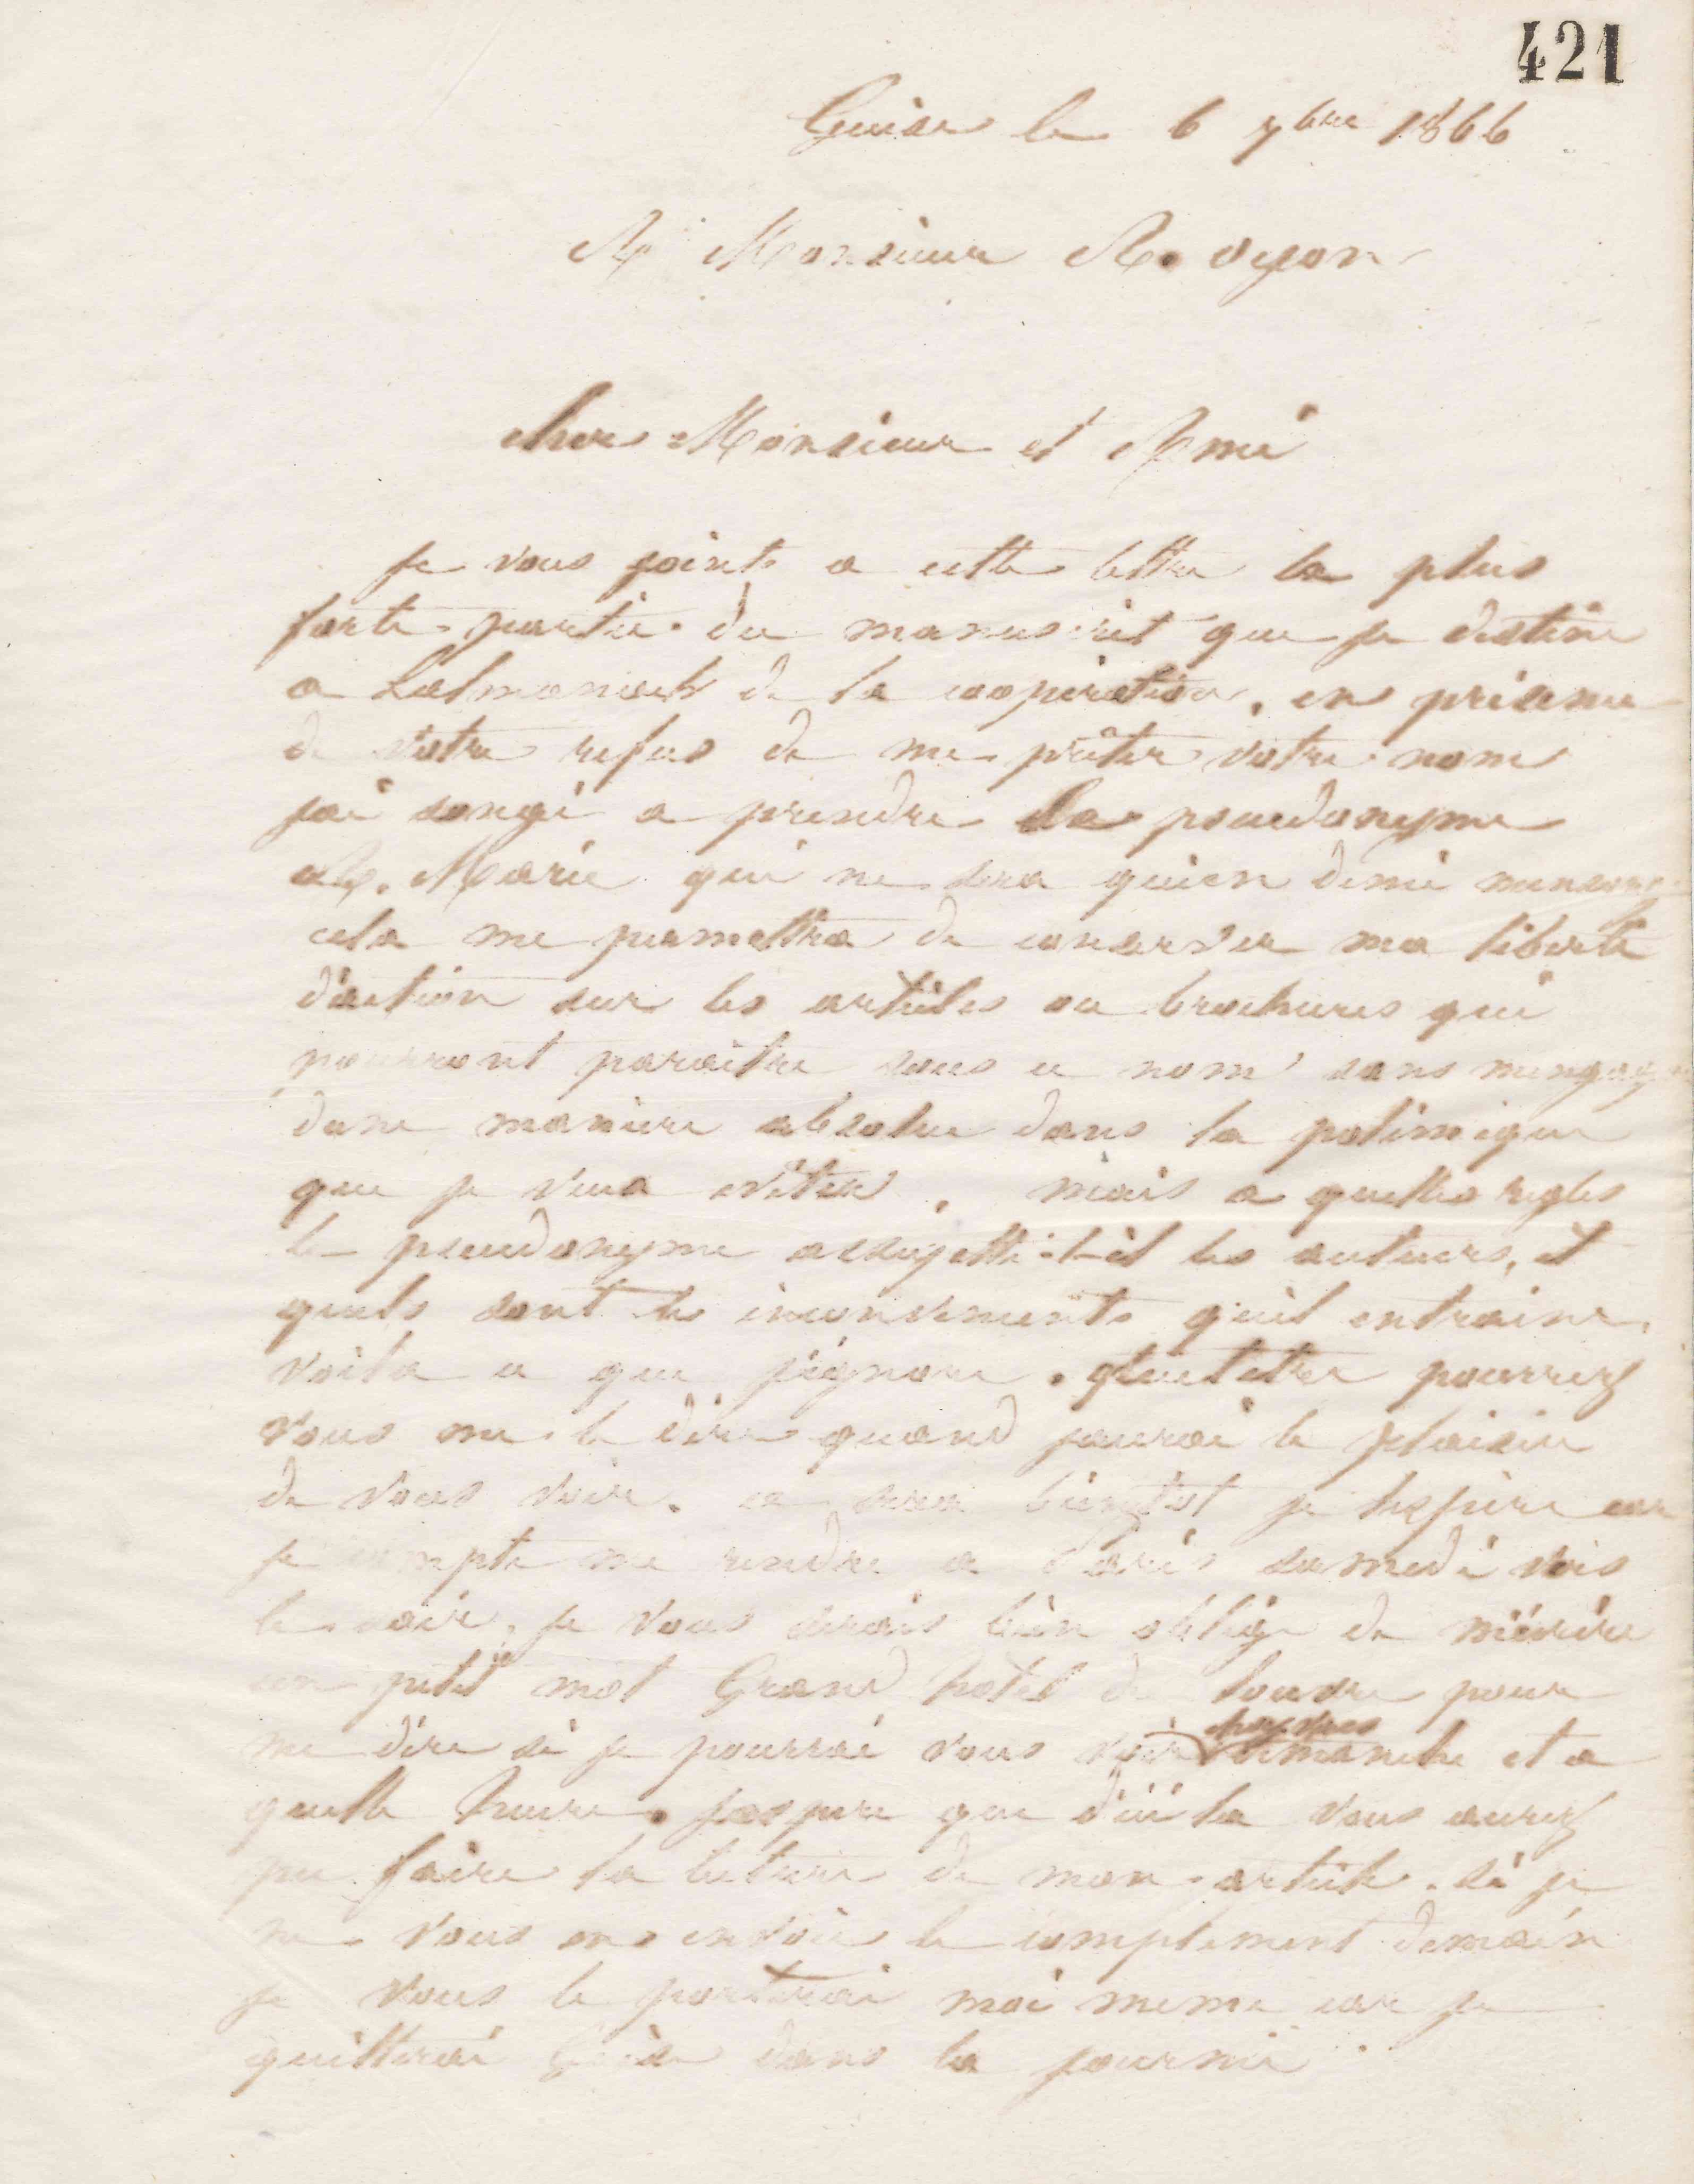 421
Guise le 6 7bre 1866
A Monsieur A. oyon
cher Monsieur et Ami
je vous joints a cette lettre la plus
forte partie du manuscrit que je destine
a Lalmanach de la coopération, en présence
de votre refus de me prêter votre nom
jai songé a prendre le pseudonyme
Marie qui ne sera qu'un demi mensonge
cela me permettra de conserver ma liberté
d'action sur les articles ou brochures qui
pourront paraitre sous ce nom sans mengager
dune maniere absolue dans la polémique
que je veux eviter, mais a quelles regles
le pseudonyme assujetti-t-il les auteurs, et
quels sont les inconvenients qu'il entraine,
voila ce que j'ignore. peutetre pourrez
vous me le dire quand jaurai le plaisir
de vous voir. ce sera bientot je lespere car
je compte me rendre a Paris samedi vers
le soir, je vous serais bien obligé de m'écrire
un petit mot Grand hotel du Louvre pour
me dire si je pourrai vous voir chez vous dimanche et a
quelle heure. jespere que d'ici la vous aurez
pu faire la lecture de mon article. si je
ne vous en envoie le complement demain
je vous le porterai moi meme car je
quitterai Guise dans la journée